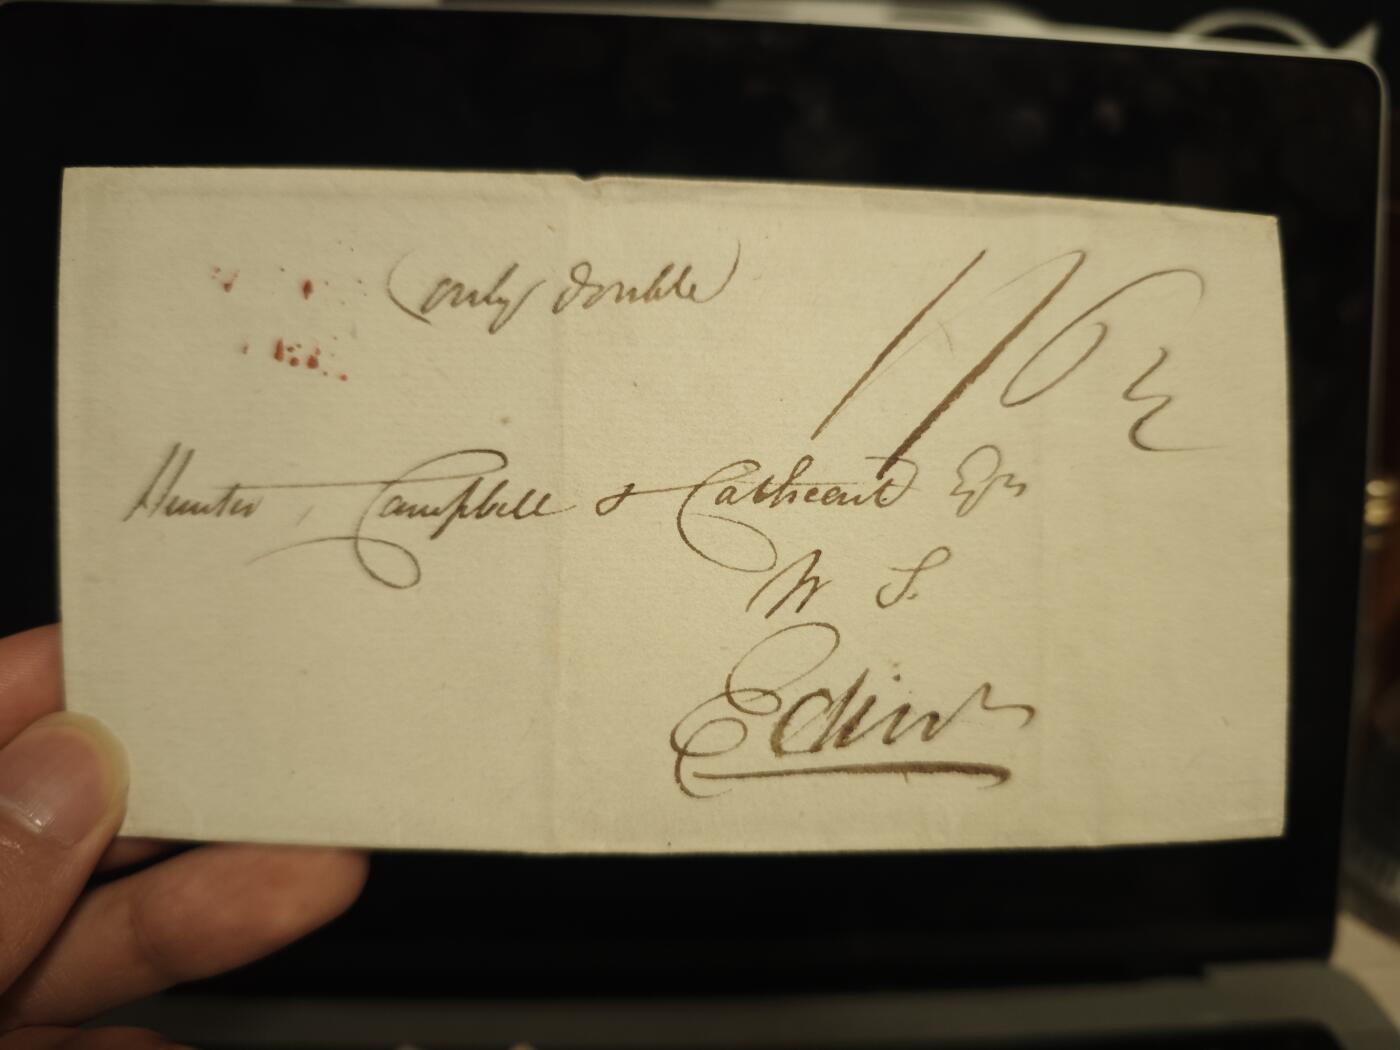 (only double)
Hunter, Campbell & Cathcart Esqrs
W S.
Edinr